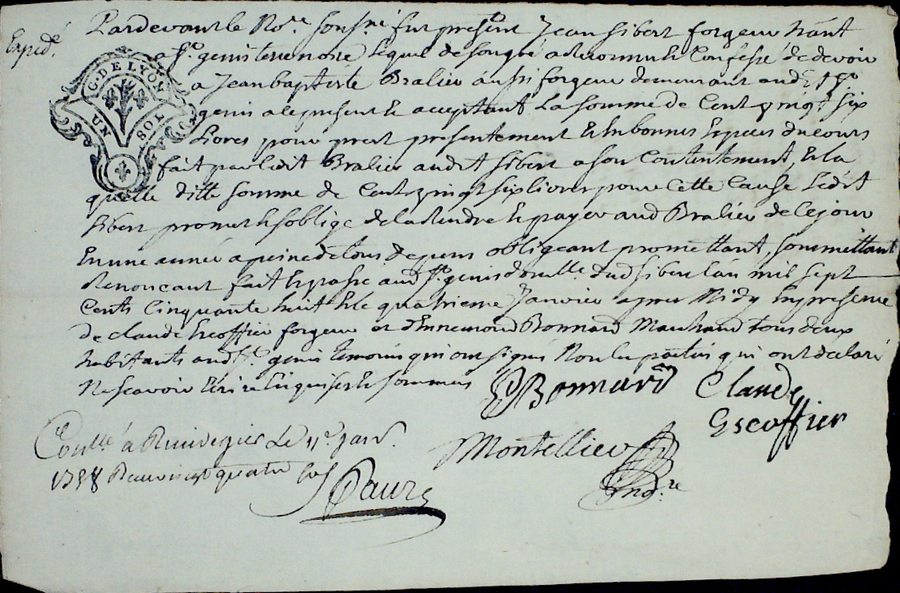 Expedié
G. DE LYON
UN SOL
Pardevant le No.re sousné fut présent Jean Sibert forgeur h̃ant
a St. genis terre noire lequel de son gré a reconnu et Confessé de devoir
a Jean baptiste Bralier aussi forgeur demeurant aud. St.
genis a ce present et acceptant La somme de Cent vingt six
Livres pour prest presentement En bonnes Especes du cours
fait par ledit Bralier audit Sibert a son Contentement, Et la
quelle ditte somme de Cent vingt six livres pour Cette Cause Ledit
Sibert promet et s'oblige de la Rendre Et payer aud Bralier de Ce jour
En une année a peine de tous depens obligeant promettant, soumettant
Renonçant fait Et passé aud St. genis domlle. dud Sibert l'an mil sept
Cents Cinquante huit Et le quatrieme Janvier apres Midy En presence
de Claude Escoffier forgeur et d'Ennemond Bonnard Marchand tous deux
habitants aud St. genis temoins qui ont signés Non les parties qui ont declaré
Ne scavoir Ecrire Enquises Et sommées
Bonnard Claude
Escoffier
Contllé a Rivedegier Le 11e janv.
1758 Reçu vingt quatre sols
Montellier
Faure